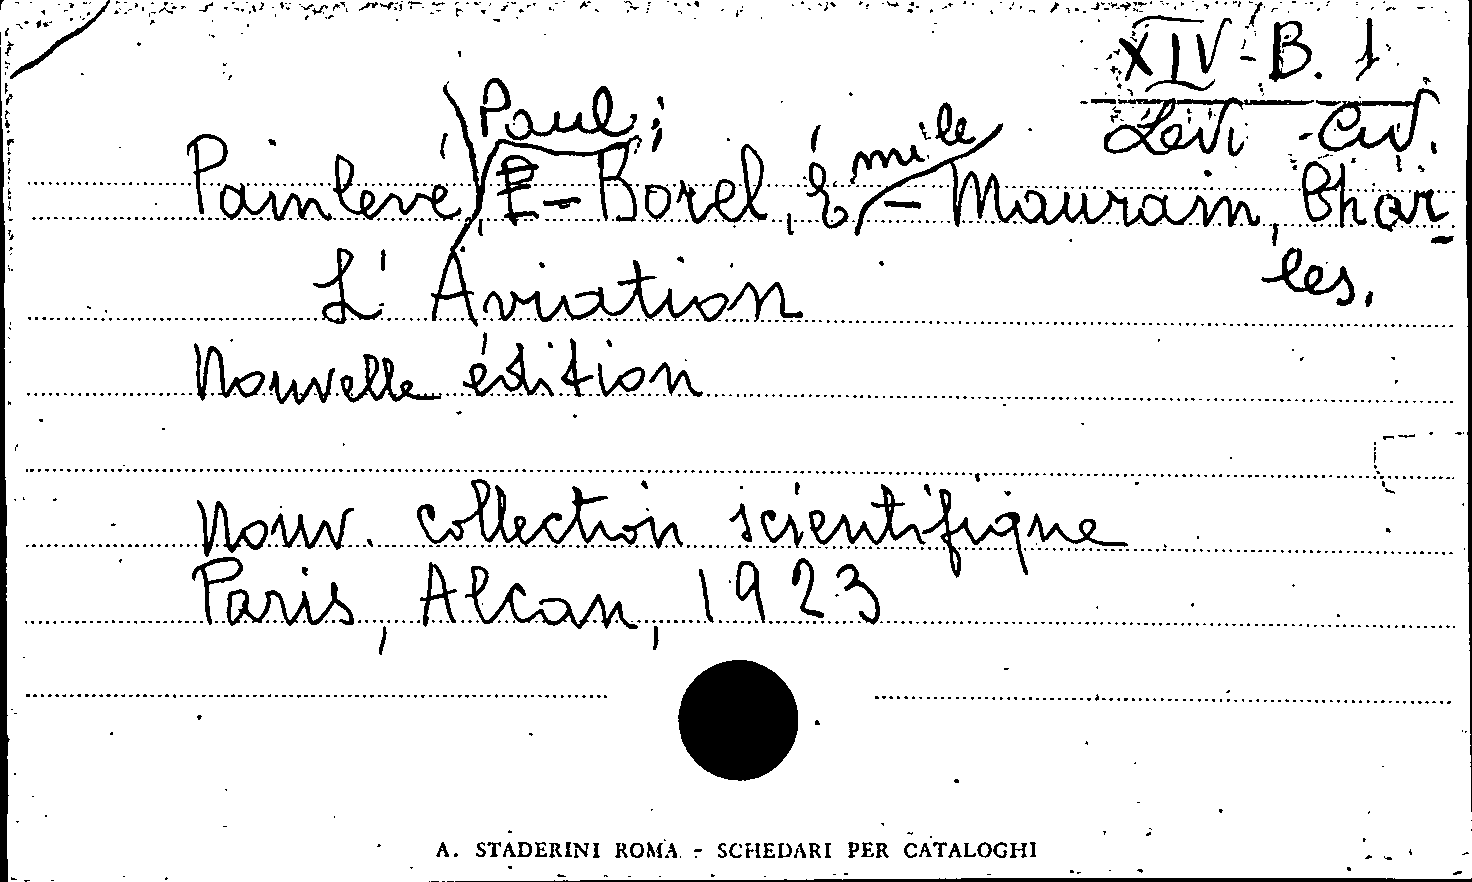 XIV-B. 1
Levi-Civ.
Painlevé, Paul; Borel, Émile - Maurain, Char-
les.
L'Aviation
Nouvelle édition
Nouv. collection scientifique
Paris, Alcan, 1923
A. STADERINI ROMA - SCHEDARI PER CATALOGHI